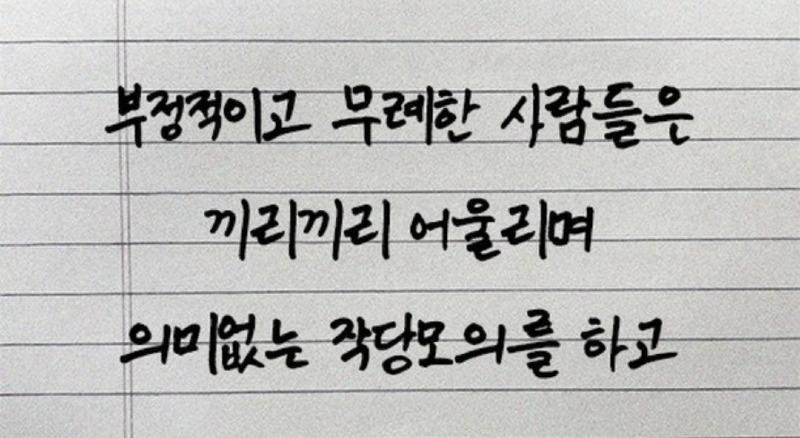 부정적이고 무례한 사람들은
끼리끼리 어울리며
의미없는 작당모의를 하고